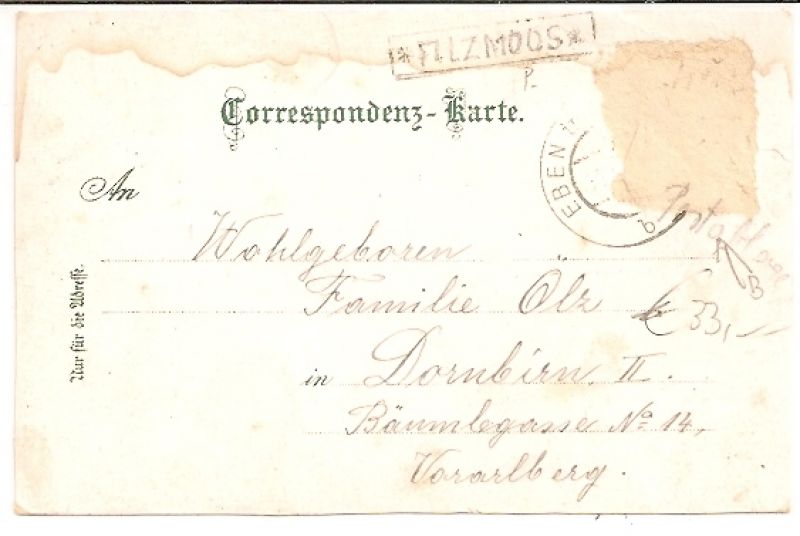 *FILZMOOS*
P.
Correspondenz-Karte.
EBEN
b
An
Wohlgeboren
Familie Ölz
€ 33,—
in Dornbirn. II.
Bäumlegasse No 14,
Vorarlberg.
Nur für die Adresse.